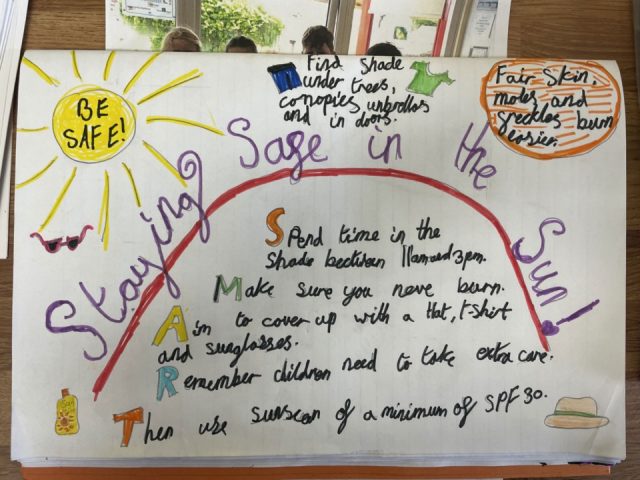 BE
SAFE!
Find shade
under trees,
canopies, unbrellas
and in doors.
Fair skin,
moles, and
freckles burn
easier.
Staying Safe in the Sun!
Spend time in the
shade bectween 11am and 3pm.
Make sure you neve burn.
Aim to cover up with a Hat, t-shirt
and sunglasses.
Remember children need to take extra care.
Then use sunscan of a minimum of SPF 30.